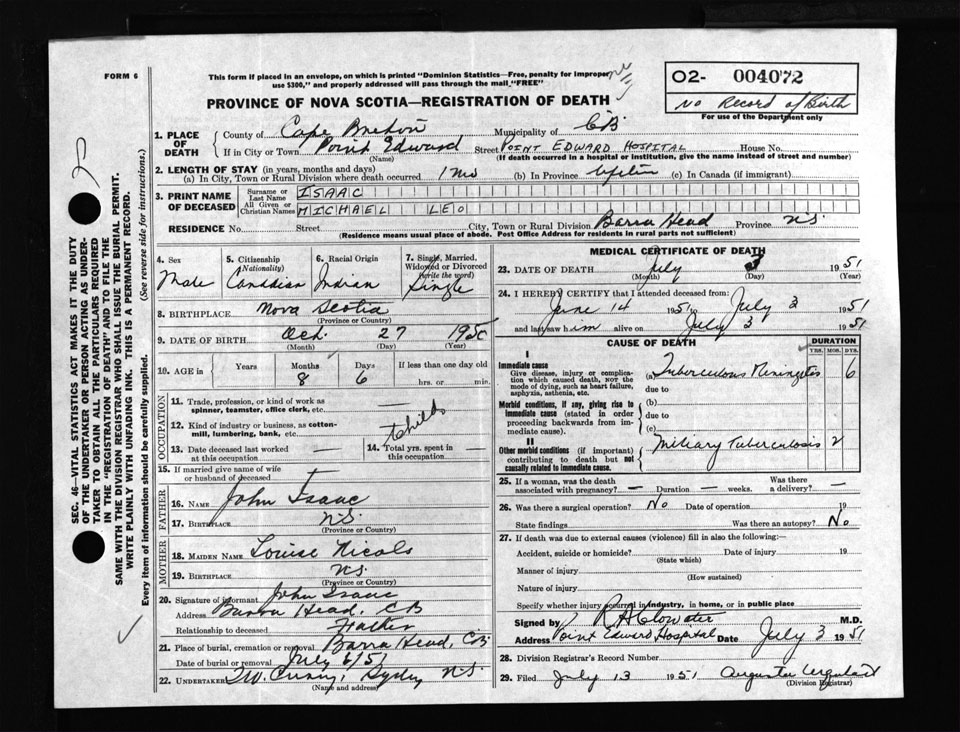 FORM 6
This form if placed in an envelope, on which is printed "Dominion Statistics—Free, penalty for improper
use $300," and properly addressed will pass through the mail "FREE"
PROVINCE OF NOVA SCOTIA—REGISTRATION OF DEATH
02- 004072
No Record of Birth
For use of the Department only
SEC. 46—VITAL STATISTICS ACT MAKES IT THE DUTY
OF THE UNDERTAKER OR PERSON ACTING AS UNDER-
TAKER TO OBTAIN ALL THE PARTICULARS REQUIRED
IN THE "REGISTRATION OF DEATH" AND TO FILE THE
SAME WITH THE DIVISION REGISTRAR WHO SHALL ISSUE THE BURIAL PERMIT.
WRITE PLAINLY WITH UNFADING INK. THIS IS A PERMANENT RECORD.
Every item of information should be carefully supplied. (See reverse side for instructions.)
1. PLACE OF DEATH
County of Cape Breton Municipality of C.B.
If in City or Town Point Edward Street POINT EDWARD HOSPITAL House No.
(Name) (If death occurred in a hospital or institution, give the name instead of street and number)
2. LENGTH OF STAY (in years, months and days)
(a) In City, Town or Rural Division where death occurred 1 mo (b) In Province Lifetime (c) In Canada (if immigrant)
3. PRINT NAME OF DECEASED
Surname or Last Name ISAAC
All Given or Christian Names MICHAEL LEO
RESIDENCE No. Street City, Town or Rural Division Barra Head Province N.S.
(Residence means usual place of abode. Post Office Address for residents in rural parts not sufficient)
4. Sex Male
5. Citizenship (Nationality) Canadian
6. Racial Origin Indian
7. Single, Married, Widowed or Divorced (write the word) Single
8. BIRTHPLACE Nova Scotia
(Province or Country)
9. DATE OF BIRTH Oct. 27 1950
(Month) (Day) (Year)
10. AGE in Years Months 8 Days 6 If less than one day old hrs. or min.
OCCUPATION
11. Trade, profession, or kind of work as
spinner, teamster, office clerk, etc.
12. Kind of industry or business, as cotton-
mill, lumbering, bank, etc. child
13. Date deceased last worked at this occupation —
14. Total yrs. spent in this occupation —
15. If married give name of wife
or husband of deceased
FATHER
16. NAME John Isaac
17. BIRTHPLACE N.S.
(Province or Country)
MOTHER
18. MAIDEN NAME Louise Nicols
19. BIRTHPLACE N.S.
(Province or Country)
20. Signature of informant John Isaac
Address Barra Head, CB
Relationship to deceased Father
21. Place of burial, cremation or removal Barra Head, C.B.
Date of burial or removal July 6/51
22. UNDERTAKER Sydney N.S.
(Name and address)
MEDICAL CERTIFICATE OF DEATH
23. DATE OF DEATH July 3 1951
(Month) (Day) (Year)
24. I HEREBY CERTIFY that I attended deceased from:
June 14 1951 to July 3 1951
and last saw him alive on July 3 1951
CAUSE OF DEATH DURATION
YRS. MOS. DYS.
I
Immediate cause
Give disease, injury or complica-
tion which caused death, NOT the
mode of dying, such as heart failure,
asphyxia, asthenia, etc.
(a) Tuberculous Meningitis 6
due to
Morbid conditions, if any, giving rise to
immediate cause (stated in order
proceeding backwards from im-
mediate cause).
(b)
due to
(c)
II
Other morbid conditions (if important)
contributing to death but not
causally related to immediate cause.
Miliary Tuberculosis 2
25. If a woman, was the death associated with pregnancy? — Duration — weeks. Was there a delivery? —
26. Was there a surgical operation? No Date of operation 19
State findings Was there an autopsy? No
27. If death was due to external causes (violence) fill in also the following:
Accident, suicide or homicide? Date of injury 19
(State which)
Manner of injury
(How sustained)
Nature of injury
Specify whether injury occurred in industry, in home, or in public place
Signed by R H Clowater M.D.
Address Point Edward Hospital Date July 3 1951
28. Division Registrar's Record Number
29. Filed July 13 1951
(Division Registrar)